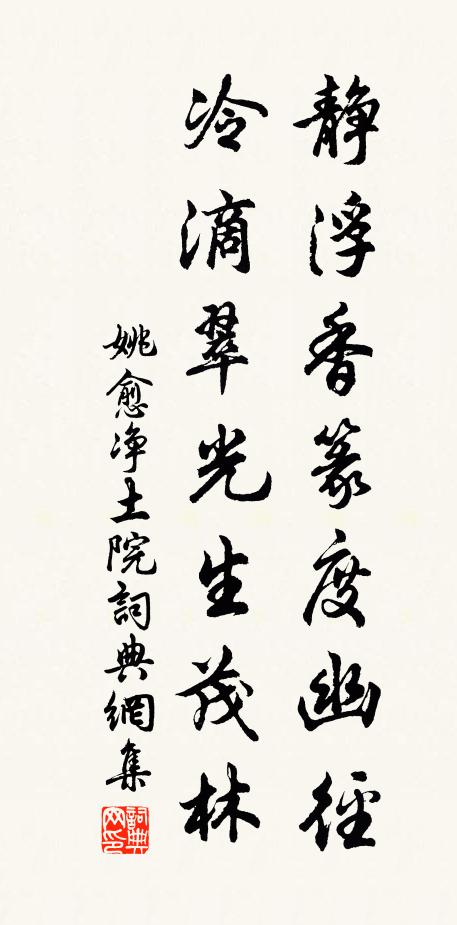 静浮香篆度幽径
冷滴翠光生茂林
姚愈净土院詞典網集
詞典网印